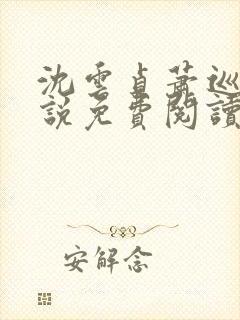 沈雲貞蕭巡
說免費閱讀
安解念